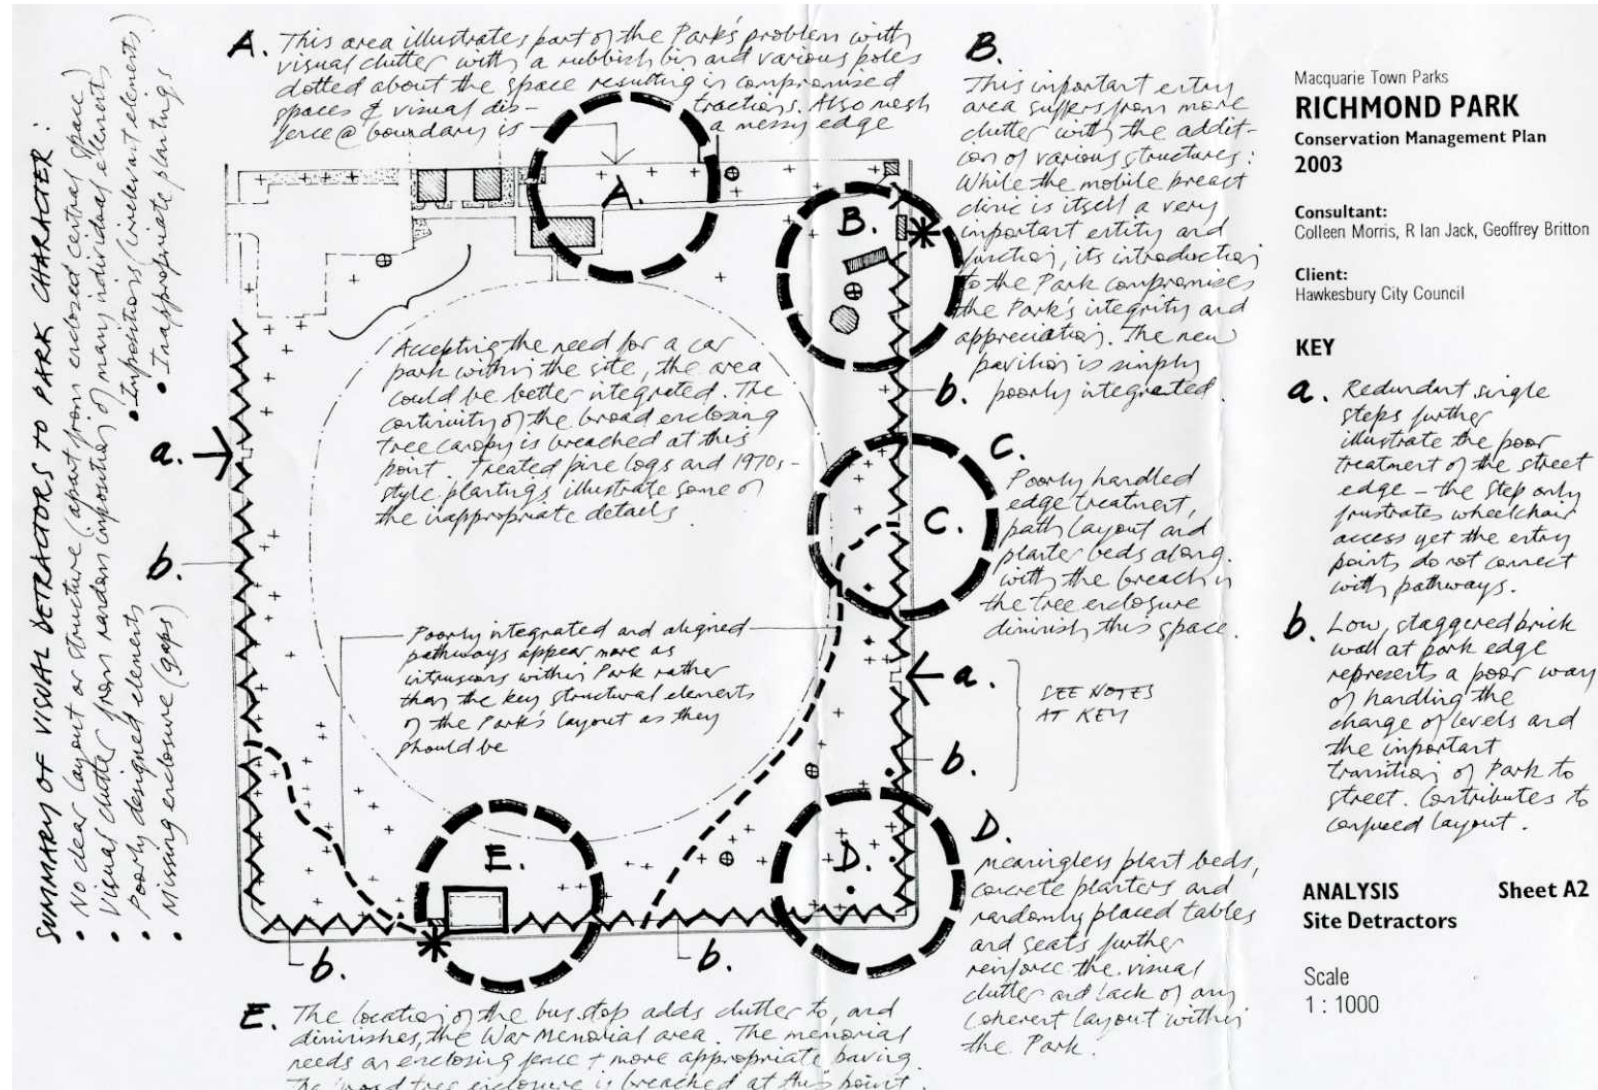 SUMMARY OF VISUAL DETRACTORS TO PARK CHARACTER :
• No clear layout or structure (apart from enclosed central space)
• Visual clutter from random imposition of many individual elements
• Poorly designed elements
• Missing enclosure (gaps)
• Impositions (irrelevant elements)
• Inappropriate plantings
A. This area illustrates part of the Park's problem with
visual clutter with a rubbish bin and various poles
dotted about the space resulting in compromised
spaces & visual dis- tractions. Also mesh
fence @ boundary is a messy edge
A.
B.
C.
D.
E.
a.
b.
b.
b.
b.
a.
b.
Accepting the need for a car
park within the site, the area
could be better integrated. The
continuity of the broad enclosing
tree canopy is breached at this
point. Treated pine logs and 1970s-
style plantings illustrate some of
the inappropriate details
Poorly integrated and aligned
pathways appear more as
intrusions within Park rather
than the key structural elements
of the Park's layout as they
should be
B.
This important entry
area suffers from more
clutter with the addit-
ion of various structures:
While the mobile breast
clinic is itself a very
important entity and
function, its introduction
to the Park compromises
the Park's integrity and
appreciation. The new
pavilion is simply
poorly integrated.
C.
Poorly handled
edge treatment,
path layout and
planter beds along
with the breach in
the tree enclosure
diminish this space.
SEE NOTES
AT KEY
D.
Meaningless plant beds,
concrete planters and
randomly placed tables
and seats further
reinforce the visual
clutter and lack of any
coherent layout within
the Park.
E. The location of the bus stop adds clutter to, and
diminishes, the War Memorial area. The memorial
needs an enclosing fence + more appropriate paving.
The broad tree enclosure is breached at this point.
Macquarie Town Parks
RICHMOND PARK
Conservation Management Plan
2003
Consultant:
Colleen Morris, R Ian Jack, Geoffrey Britton
Client:
Hawkesbury City Council
KEY
a. Redundant single
steps further
illustrate the poor
treatment of the street
edge – the step only
frustrates wheelchair
access yet the entry
points do not connect
with pathways.
b. Low, staggered brick
wall at park edge
represents a poor way
of handling the
change of levels and
the important
transition of Park to
street. Contributes to
confused layout.
ANALYSIS Sheet A2
Site Detractors
Scale
1 : 1000